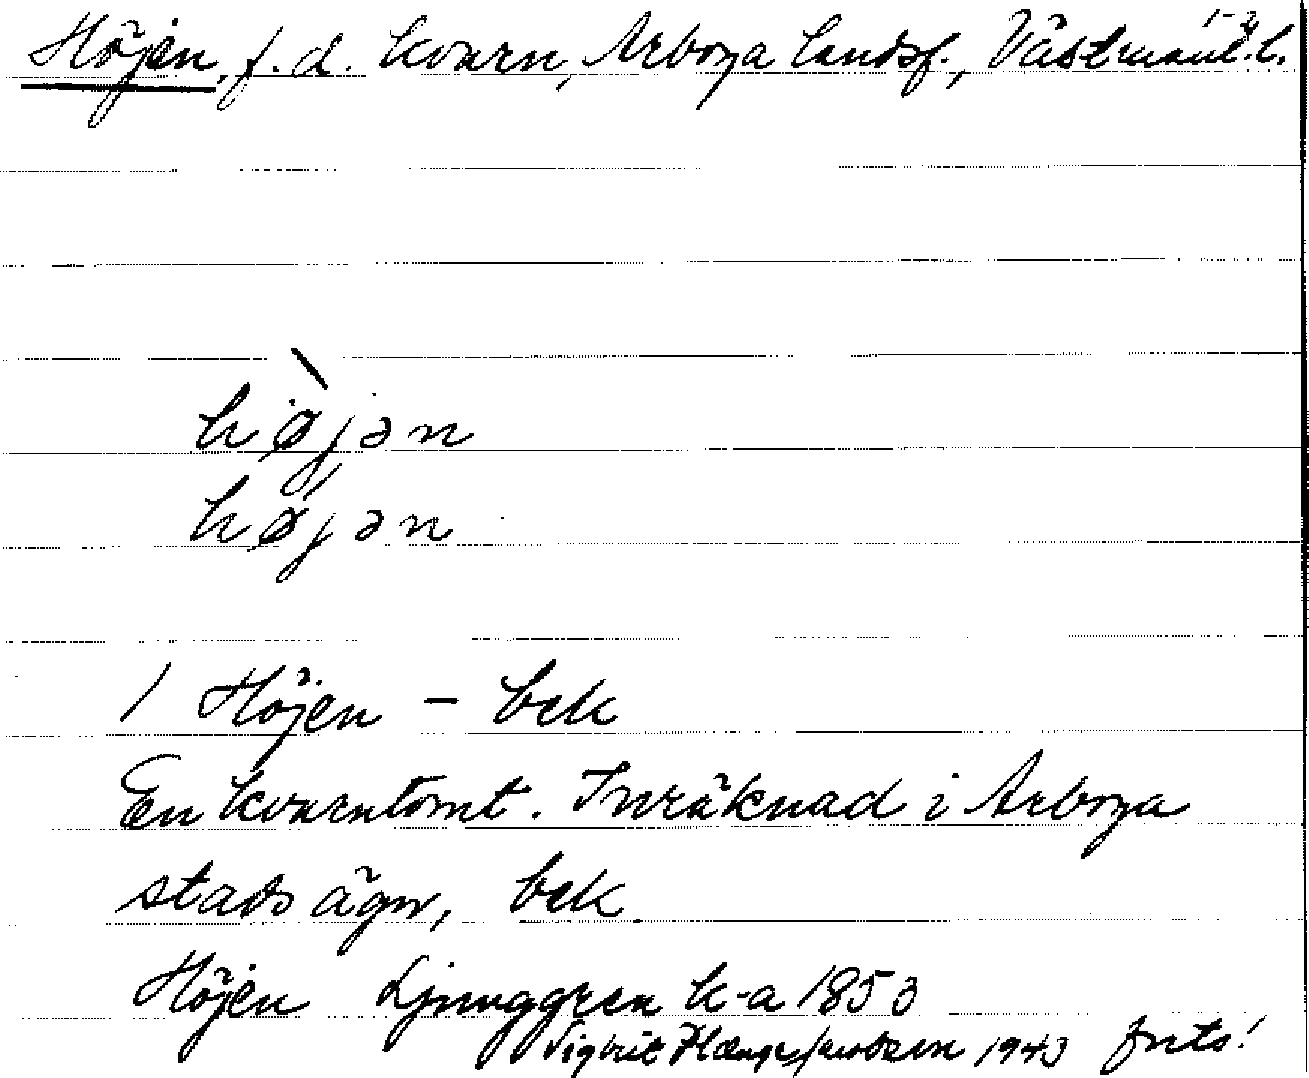 Höjen, f.d. kvarn, Arboya landsf., Västmanl. l.
højən
højən
1 Höjen – bek
En kvarntomt. Inräknad i Arboga
stads ägor, bek.
Höjen Ljunggren k-a 1853
Sigbrit 1943 forts!